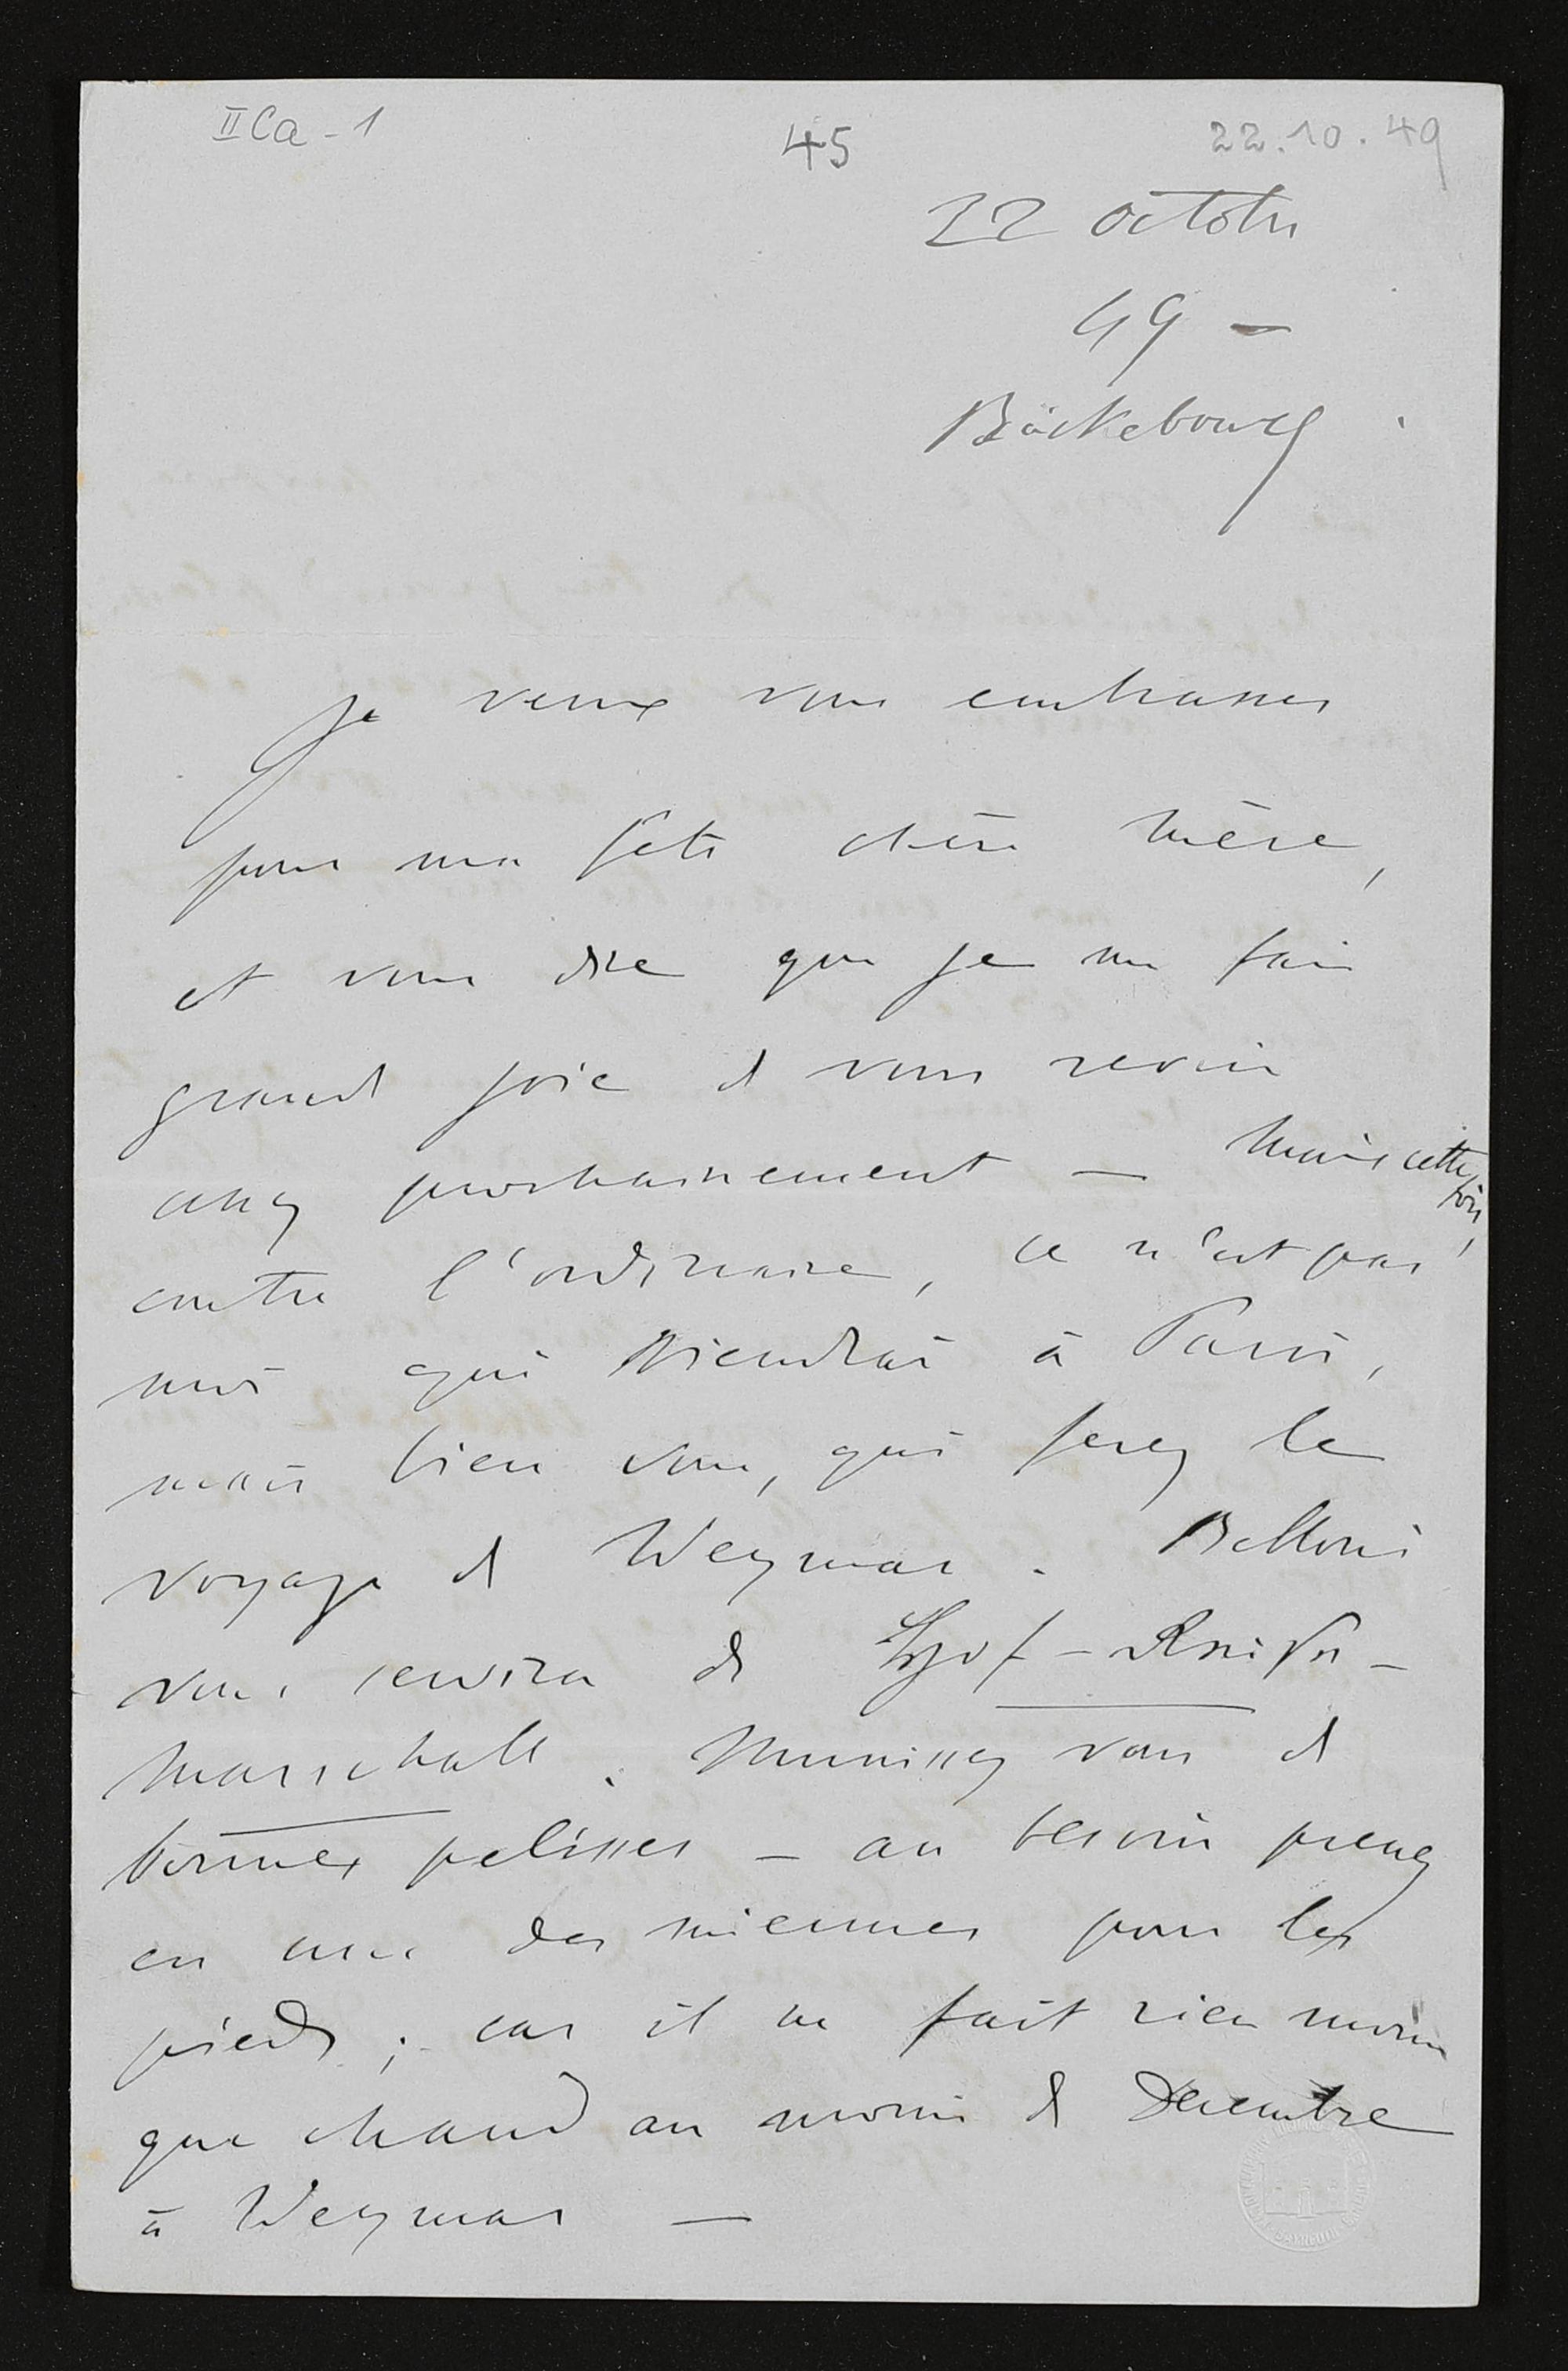 II Ca - 1
45
22.10.49
22 octobre
49 —
Bückebourg
Je veux vous embrasser
pour ma fête chère mère,
et vous dire que je me fais
grand joie de vous revoir
assez prochainement — Mais cette fois,
contre l'ordinaire, ce n'est pas
moi qui viendrai à Paris,
mais bien vous, qui ferez le
voyage de Weymar. Belloni
vous servira de Hof-Reise-
Marschall. Munissez vous de
bonnes pelisses — au besoin prenez
en une des miennes pour les
pieds ; car il ne fait rien moins
que chaud au mois de Decembre
à Weymar —